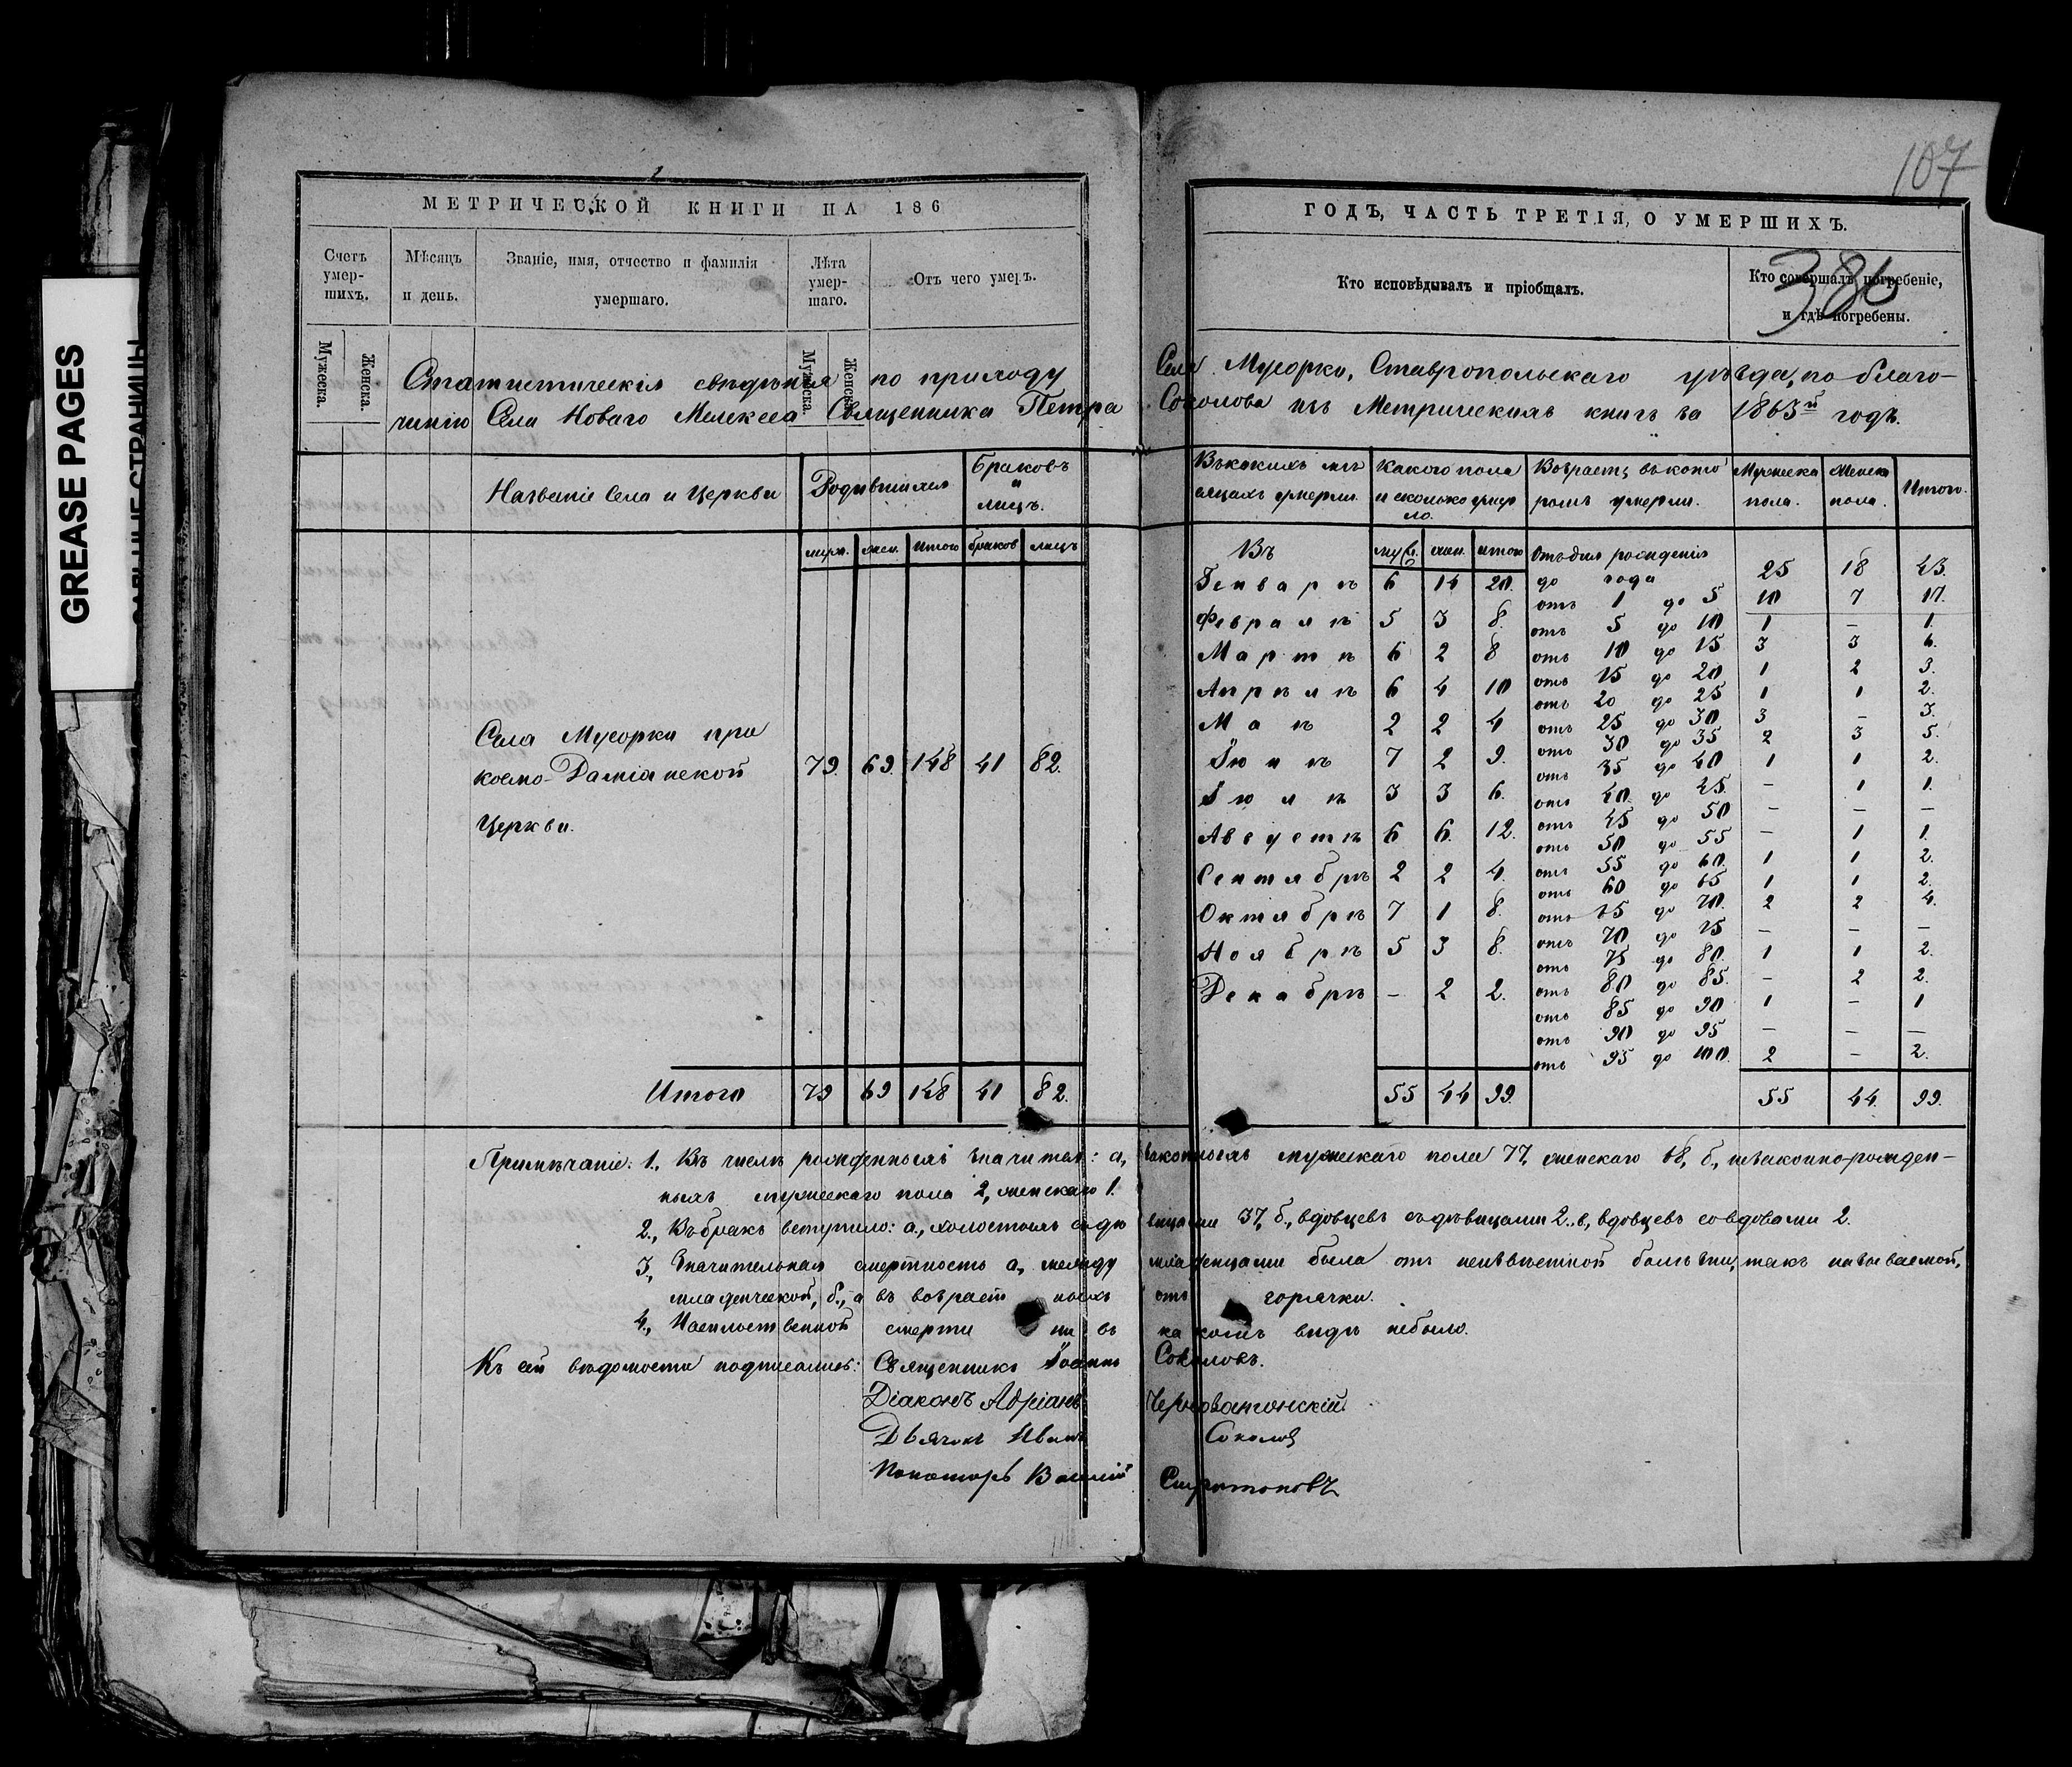 GREASE PAGES
САЛЬНЫЕ СТРАНИЦЫ
107
МЕТРИЧЕСКОЙ КНИГИ НА 186
ГОДЪ, ЧАСТЬ ТРЕТІЯ, О УМЕРШИХЪ.
Счетъ умер-шихъ.
Мѣсяцъ и день.
Званіе, имя, отчество и фамилія умершаго.
Лѣта умер-шаго.
Отъ чего умеръ.
Кто исповѣдывалъ и пріобщалъ.
Кто совершалъ погребеніе, и гдѣ погребены.
386
Мужеска.
Женска.
Мужеска.
Женска.
Статистическія свѣдѣнія по приходу Села Мусорки, Ставропольскаго уѣзда, по благо-
чинію Села Новаго Мелекеса Священника Петра Соколова изъ Метрическихъ книгъ за 1863й годъ.
Названіе Села и Церкви
Родившихся
Браковъ и лицъ.
муж. жен. Итого браков лицъ
Села Мусорки при
космо-Даміанской
Церкви.
79. 69. 148 41 82.
Итого 79 69 148 41 82.
Въ какихъ мѣ-сяцахъ умерли.
Какого пола и сколько умер-ло.
Возрастъ, въ кото-ромъ умерли.
Мужеска пола.
Женска пола.
Итого.
Въ муж. жен. итого
Генварѣ 6 14 20.
Февралѣ 5 3 8.
Мартѣ 6 2 8
Апрѣлѣ 6 4 10
Маѣ 2 2 4
Іюнѣ 7 2 9.
Іюлѣ 3 3 6.
Августѣ 6 6. 12.
Сентябрѣ 2 2 4.
Октябрѣ 7 1 8.
Ноябрѣ 5 3 8.
Декабрѣ – 2 2.
55 44 99.
Отъ дня рожденія
до года 25 18 43.
отъ 1 до 5 10 7 17.
отъ 5 до 10 1 – 1.
отъ 10 до 15 3 3 6.
отъ 15 до 20 1 2 3.
отъ 20 до 25 1 1 2.
отъ 25 до 30 3 – 3.
отъ 30 до 35 2 3 5.
отъ 35 до 40 1 1 2.
отъ 40 до 45 – 1 1.
отъ 45 до 50 – – –
отъ 50 до 55 – 1 1.
отъ 55 до 60. 1 1 2.
отъ 60 до 65 1 1 2.
отъ 65 до 70. 2 2 4.
отъ 70 до 75 – – –
отъ 75 до 80. 1 1 2.
отъ 80 до 85. – 2 2.
отъ 85 до 90 1 – 1
отъ 90 до 95 – – –
отъ 95 до 100. 2 – 2.
55 44. 99.
Примѣчаніе: 1., Въ числѣ рожденныхъ значится: а, законныхъ мужескаго пола 77, женскаго 68, б., незаконно-рожден-
ныхъ мужескаго пола 2, женскаго 1.
2., Въ бракъ вступило: а., холостыхъ съ дѣвицами 37, б., вдовцевъ съ дѣвицами 2., в, вдовцевъ со вдовами 2.
3., Значительная смертность а, между младенцами была отъ неизвѣстной болѣзни, такъ называемой,
младенческой, б., а въ возраст ныхъ отъ горячки.
4., Насильственной смерти ни въ какомъ видѣ небыло.
Къ сей вѣдомости подписались: Священникъ Іоаннъ Соколовъ.
Діаконъ Адріанъ
Дьячокъ Иванъ Соколов
Пономарь Василій